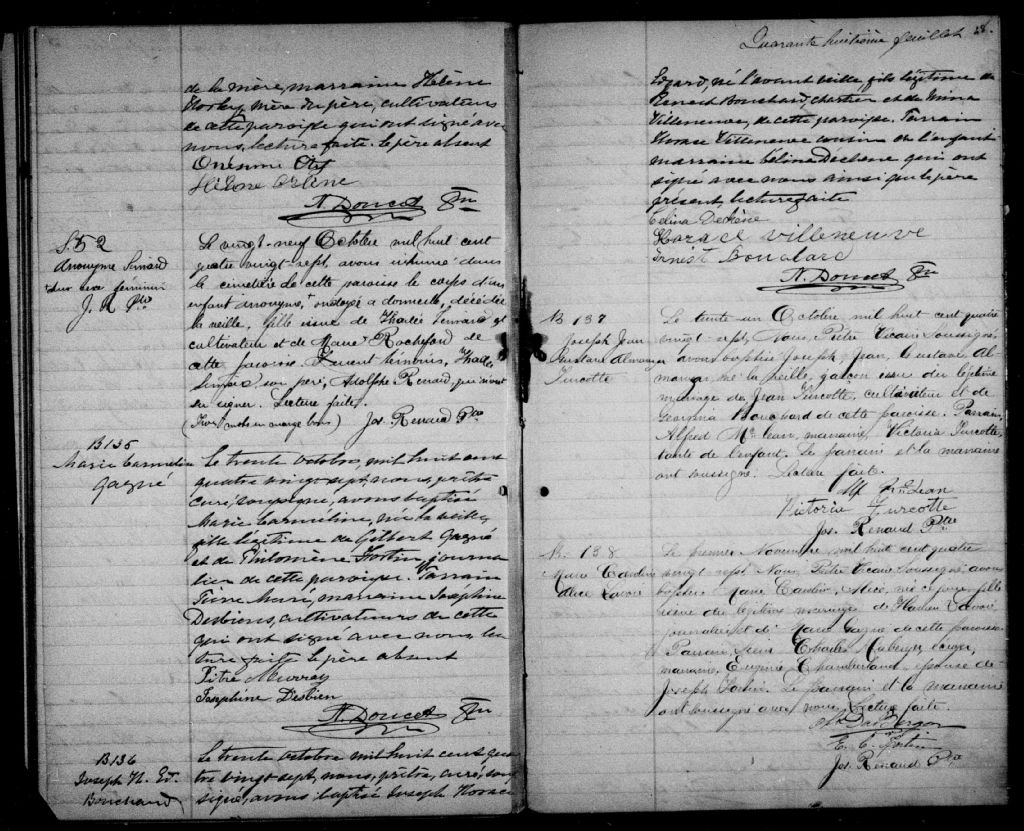 de la mère, marraine Hélène
mère du père, cultivateurs
de cette paroisse qui ont signé avec
nous, lecture faite. le père absent
Onésime
Hélène
N. Doucet Ptre
S. 52
Anonyme Simard
du sexe féminin
J. R. Ptre
Le vingt-neuf Octobre mil huit cent
quatre vingt-sept, avons inhumé dans
le cimetière de cette paroisse le corps d'un
enfant anonyme, ondoyé à domicile, décédé
la veille, fille issue de Thadée Simard
cultivateur et de Marie Rochefort de
cette paroisse. Furent témoins, Thadée
Simard, son père, Adolphe Renaud, qui n'ont
su signer. Lecture faite.
( mots en marge bons) Jos. Renaud Ptre
B 135
Marie Carméline
Gagné
Le trente octobre, mil huit cent
quatre vingt sept, nous, prêtre
curé, soussigné, avons baptisé
Marie Carméline, née la veille,
fille légitime de Gilbert Gagné
et de Philomène Fortin, journa
lier de cette paroisse. Parrain
Pitre Murray, marraine Joséphine
Desbiens, cultivateurs de cette
qui ont signé avec nous, lec
ture faite le père absent
Pitre Murray
Joséphine Desbien
N. Doucet Ptre
B 136
Joseph H. Ed.
Bouchard
Le trente octobre mil huit cent qua
tre vingt sept, nous, prêtre, curé, sous
signé, avons baptisé Joseph Horace
Quarante huitième feuillet 48.
Edgard, né l'avant veille, fils légitime de
Ernest Bouchard, charretier et de Mina
Villeneuve, de cette paroisse. Parrain
Horace Villeneuve cousin de l'enfant
marraine Célina Deschene qui ont
signé avec nous ainsi que le père
présent lecture faite
Célina Deshène
Horace Villeneuve
Ernest Bouchard
N. Doucet Ptre
B 137
Joseph Jean
Gustave Almanzar
Turcotte
Le trente un Octobre, mil huit cent quatre
vingt-sept, Nous, Prêtre Vicaire soussigné,
avons baptisé Joseph Jean, Gustave Al
manzar, né la veille, garçon issu du légitime
mariage de Jean Turcotte, cultivateur et de
Georgina Bouchard de cette paroisse. Parrain,
Alfred McLean, marraine, Victoria Turcotte,
tante de l'enfant. Le parrain et la marraine
ont soussigné. Lecture faite.
Alf McLean
Victoria Turcotte
Jos. Renaud Ptre
B. 138
Marie Caroline
Alice Lavoie
Le premier Novembre mil huit cent quatre
vingt-sept Nous, Prêtre Vicaire soussigné avons
baptisé Marie Caroline, Alice, née ce jour, fille
issue du légitime mariage de Lavoie
journalier et de Marie Gagné, de cette paroisse.
Parrain, sieur Charles écuyer,
marraine, Eugénie Chamberland, épouse de
Joseph Fortin. Le parrain et la marraine
ont soussigné avec nous. Lecture faite.
E. C. Fortin
Jos. Renaud Ptre